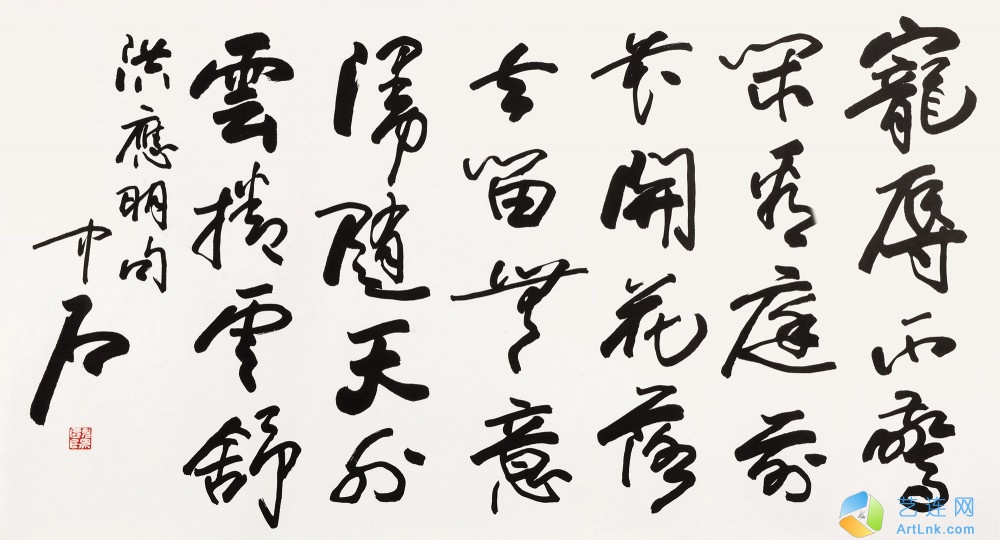 寵辱不驚
閑看庭前
花開花落
去留無意
漫隨天外
雲捲雲舒
洪應明句
中石
艺连网
ArtLnk.com